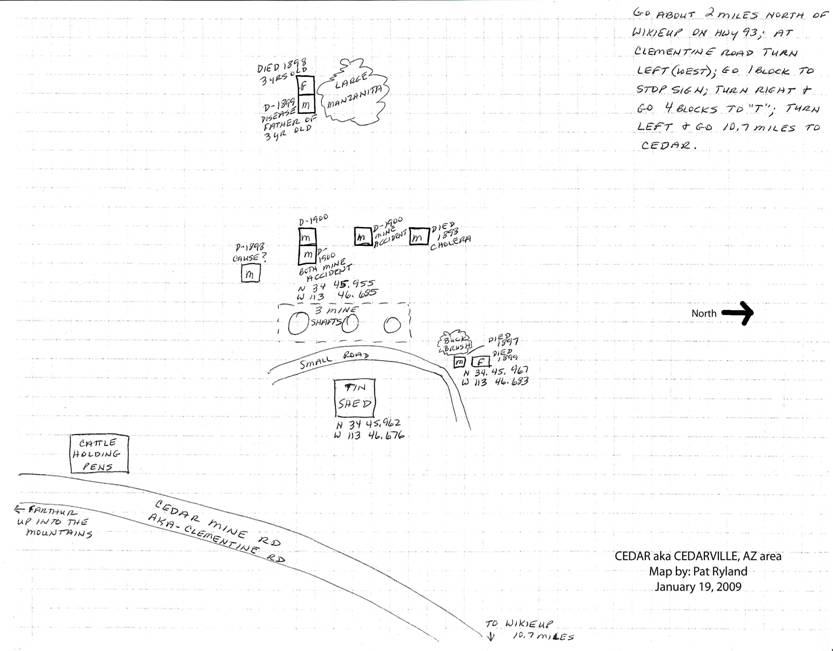 GO ABOUT 2 MILES NORTH OF
WIKIEUP ON HWY 93; AT
CLEMENTINE ROAD TURN
LEFT (WEST); GO 1 BLOCK TO
STOP SIGN; TURN RIGHT &
GO 4 BLOCKS TO "T"; TURN
LEFT & GO 10.7 MILES TO
CEDAR.
DIED 1898
3 YRS OLD
F
M
D-1899
DISEASE
FATHER OF
3 YR OLD
LARGE
MANZANITA
D-1898
CAUSE?
M
D-1900
M
M
D-
1900
BOTH MINE
ACCIDENT
N 34 45.955
W 113 46.685
M
D-1900
MINE
ACCIDENT
M
DIED
1898
CHOLERA
3 MINE
SHAFTS
North
SMALL ROAD
BUCK
BRUSH
DIED
1897
M
F
DIED
1899
N 34. 45. 967
W 113 46.683
TIN
SHED
N 34 45.962
W 113 46.676
CATTLE
HOLDING
PENS
CEDAR MINE RD
AKA-CLEMENTINE RD
← FARTHUR
UP INTO THE
MOUNTAINS
CEDAR aka CEDARVILLE, AZ area
Map by: Pat Ryland
January 19, 2009
TO WIKIEUP
↓ 10.7 MILES